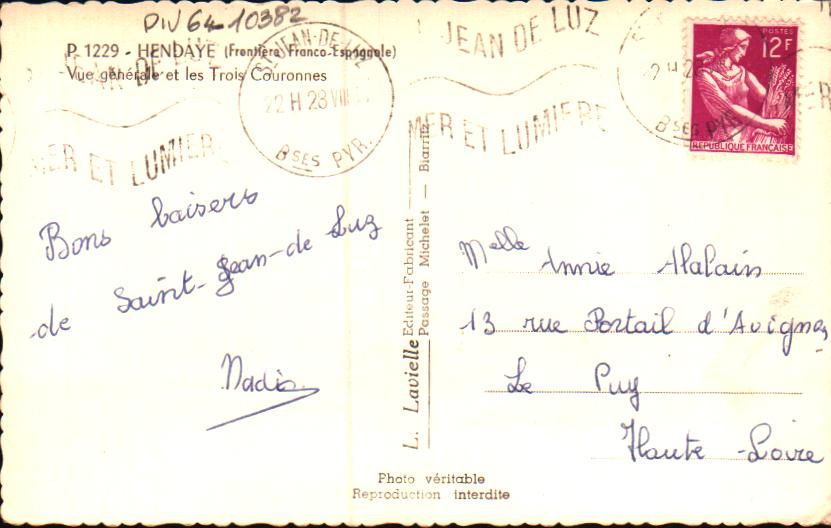 DIV 64-10382
P. 1229 - HENDAYE (Frontière Franco-Espagnole)
Vue générale et les Trois Couronnes
JEAN DE LUZ
MER ET LUMIERE
ST JEAN-DE-LUZ
22 H 28 VIII
BSES PYR.
JEAN DE LUZ
MER ET LUMIERE
BSES PYR
POSTES
12F
REPUBLIQUE FRANÇAISE
Bons baisers
de Saint-Jean-de Luz
Nadia
L. Lavielle Editeur-Fabricant
Passage Michelet — Biarritz
Melle Annie Alalain
13 rue Portail d'Avignon
Le Puy
Haute-Loire
Photo véritable
Reproduction interdite